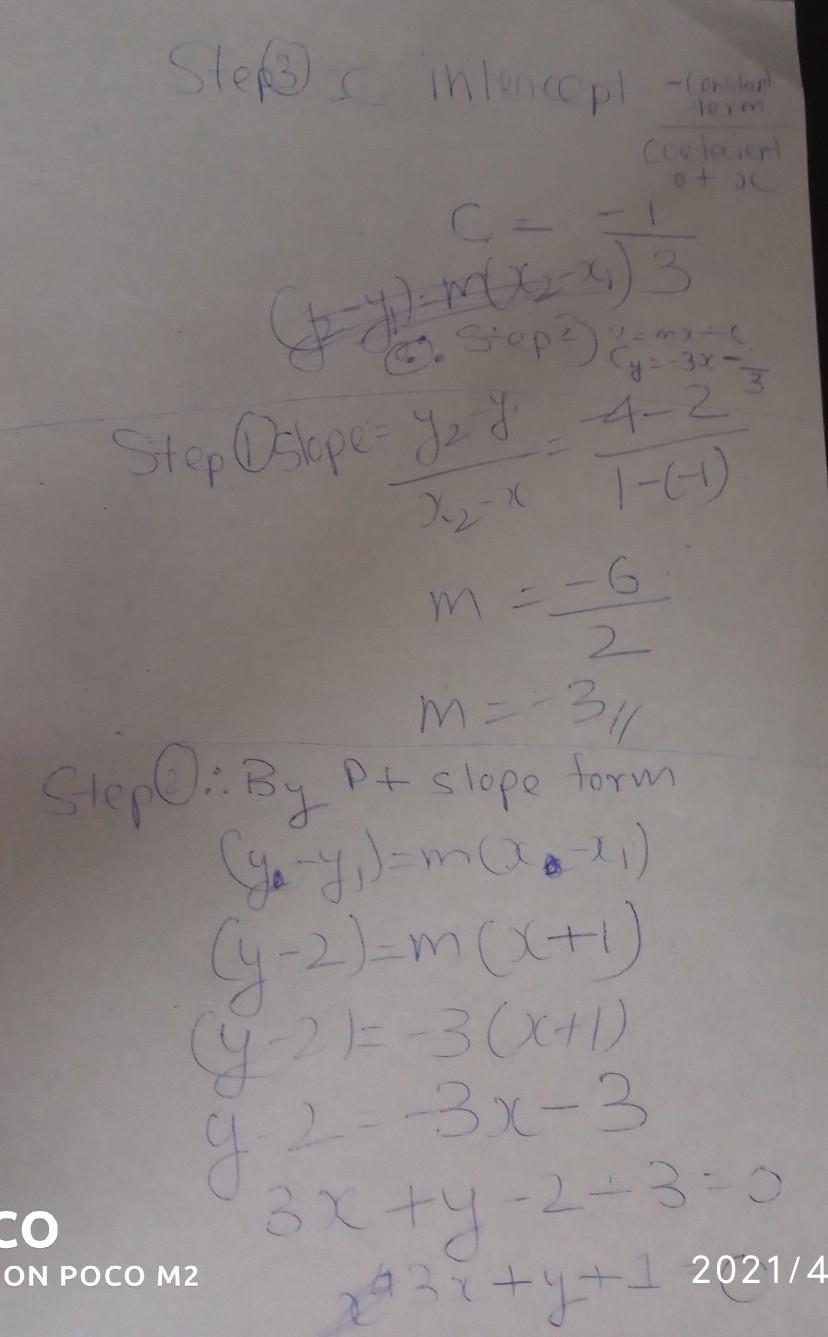 Step③ x intercept -Constant term / Coefficient of x
C = -1/3
(y₂-y₁)=m(x₂-x₁)
Step
y=-3x-1/3
Step①Slope= y₂-y/x₂-x = -4-2/1-(-1)
m = -6/2
m=-3//
Step②∴By Pt slope form
(y-y₁)=m(x-x₁)
(y-2)=m(x+1)
(y-2)=-3(x+1)
y-2=-3x-3
3x+y-2+3=0
3x+y+1
CO
ON POCO M2
2021/4